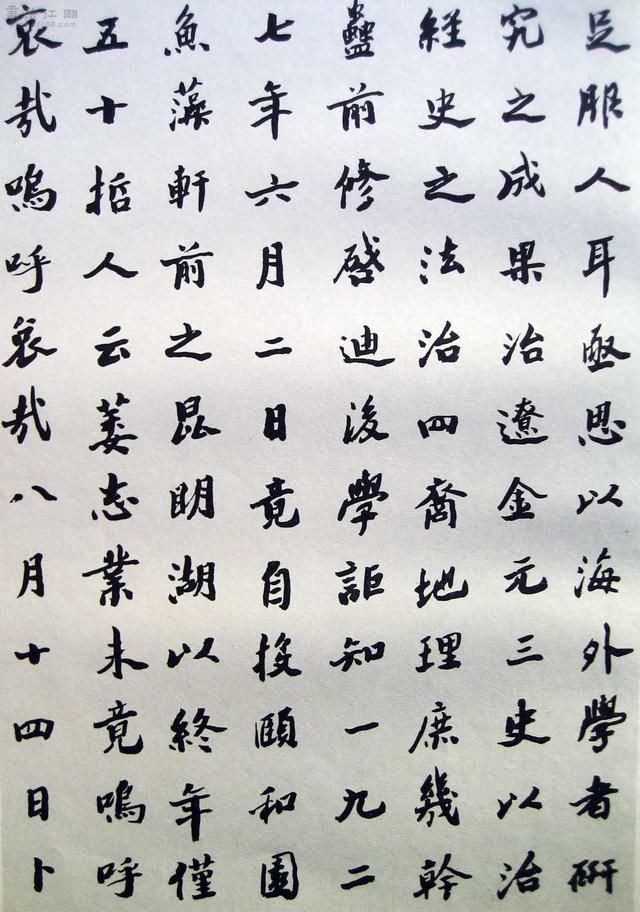 足服人耳亟思以海外學者研
究之成果治遼金元三史以治
經史之法治四裔地理庶幾幹
蠱前修啓迪後學詎知一九二
七年六月二日竟自投頤和園
魚藻軒前之昆明湖以終年僅
五十哲人云萎志業未竟嗚呼
哀哉嗚呼哀哉八月十四日卜